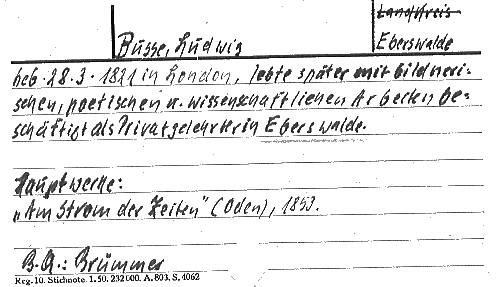 Landkreis
Busse, Ludwig Eberswalde
geb. 28.3.1821 in London, lebte später mit bildneri-
schen, poetischen u. wissenschaftlichen Arbeiten be-
schäftigt als Privatgelehrter in Eberswalde.
Hauptwerke:
"Am Strom der Zeiten" (Oden), 1853.
B.Q.: Brümmer
Reg. 10. Stichnote. 1. 50. 232000. A. 803. S. 4062